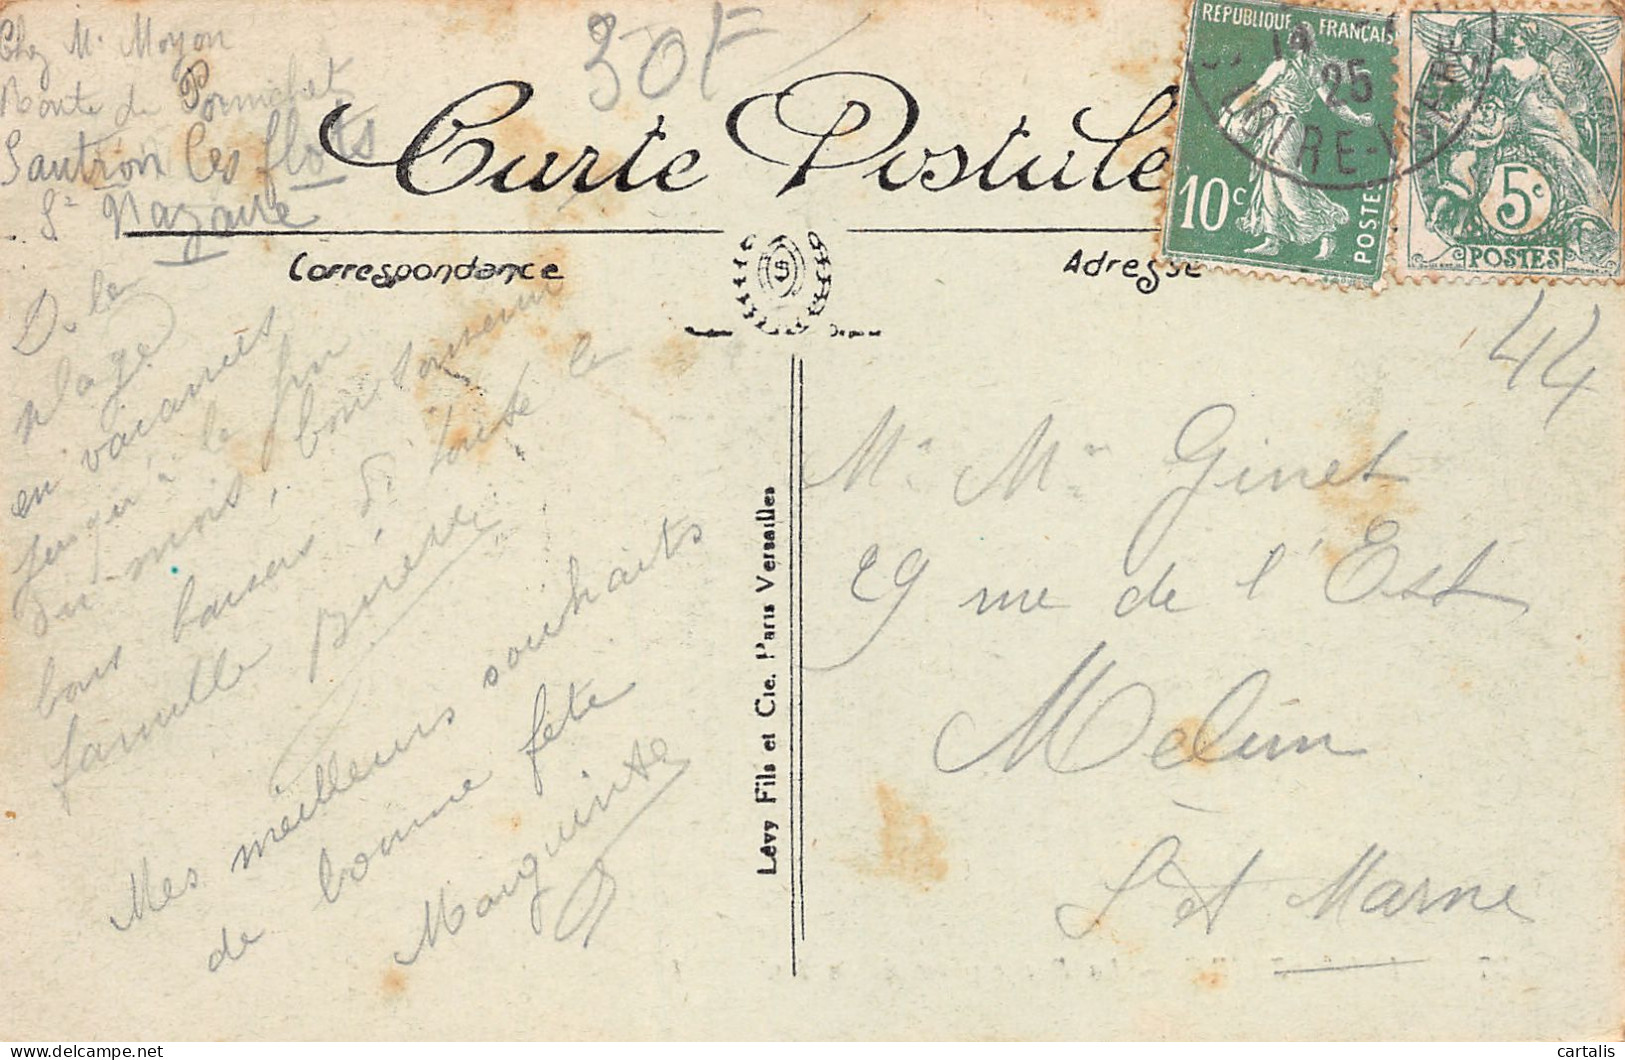 Chez M. Moyon
Route de Pornichet
Sautron les flots
St Nazaire
30F
Carte Postale
REPUBLIQUE FRANÇAISE
14
25
LOIRE-INFRE
10c
POSTES
5c
POSTES
Correspondance
Adresse
44
De la
plage
en vacances
jusqu'à la fin
du mois, bon souvenir
bons baisers de toute la
famille
Mes meilleurs souhaits
de bonne fête
Marguerite
Lévy Fils et Cie. Paris Versailles
Mr Mme Ginet
29 rue de l'Est
Melun
S et Marne
cartalis